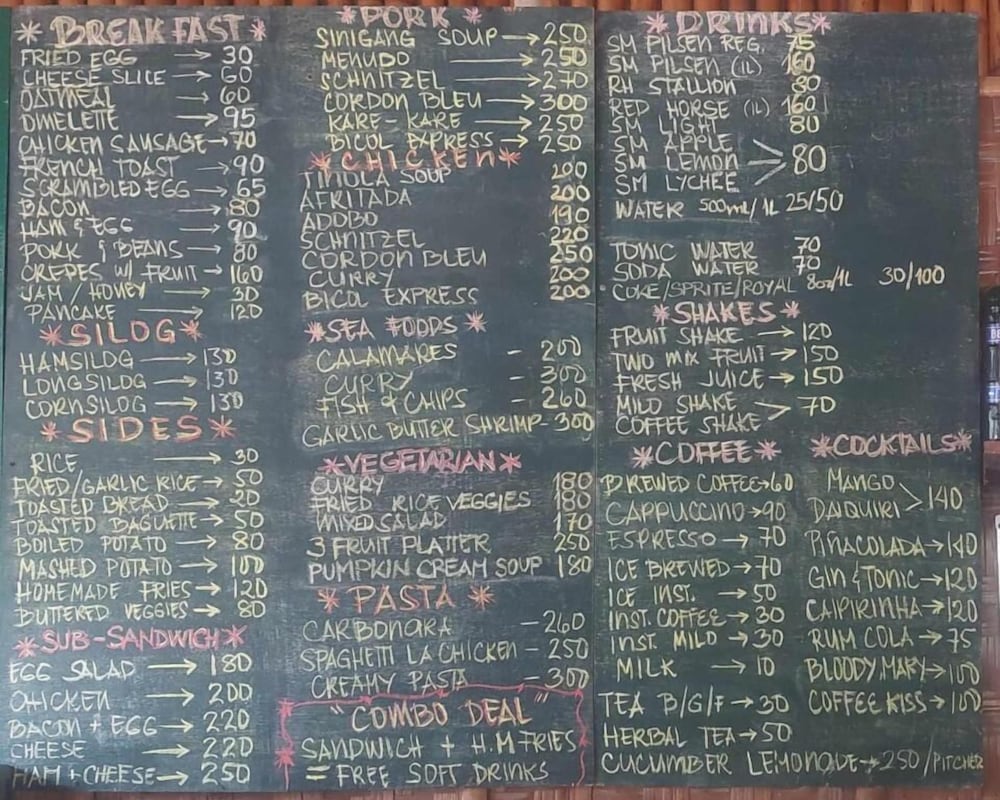 * BREAKFAST *
FRIED EGG → 30
CHEESE SLICE → 60
OATMEAL → 60
OMELETTE → 95
CHICKEN SAUSAGE → 70
FRENCH TOAST → 90
SCRAMBLED EGG → 65
BACON → 80
HAM & EGG → 90
PORK & BEANS → 80
CREPES W/ FRUIT → 160
JAM / HONEY → 30
PANCAKE → 120
* SILOG *
HAMSILOG → 130
LONGSILOG → 130
CORNSILOG → 130
* SIDES *
RICE → 30
FRIED/GARLIC RICE → 50
TOASTED BREAD → 20
TOASTED BAGUETTE → 50
BOILED POTATO → 80
MASHED POTATO → 100
HOMEMADE FRIES → 120
BUTTERED VEGGIES → 80
* SUB-SANDWICH *
EGG SALAD → 180
CHICKEN → 200
BACON + EGG → 220
CHEESE → 220
HAM + CHEESE → 250
* PORK *
SINIGANG SOUP → 250
MENUDO → 250
SCHNITZEL → 270
CORDON BLEU → 300
KARE-KARE → 250
BICOL EXPRESS → 250
* CHICKEN *
TINOLA SOUP 200
AFRITADA 200
ADOBO 190
SCHNITZEL 220
CORDON BLEU 250
CURRY 200
BICOL EXPRESS 200
* SEA FOODS *
CALAMARES - 200
CURRY - 300
FISH & CHIPS - 260
GARLIC BUTTER SHRIMP - 300
* VEGETARIAN *
CURRY 180
FRIED RICE VEGGIES 180
MIXED SALAD 170
3 FRUIT PLATTER 250
PUMPKIN CREAM SOUP 180
* PASTA *
CARBONARA - 260
SPAGHETTI LA CHICKEN - 250
CREAMY PASTA - 300
"COMBO DEAL"
SANDWICH + H.M FRIES
= FREE SOFT DRINKS
* DRINKS *
SM PILSEN REG. 75
SM PILSEN (1L) 160
RH STALLION 80
RED HORSE (1L) 160
SM LIGHT 80
SM APPLE
SM LEMON > 80
SM LYCHEE
WATER 500mL/1L 25/50
TONIC WATER 70
SODA WATER 70
COKE/SPRITE/ROYAL 8oz/1L 30/100
* SHAKES *
FRUIT SHAKE → 120
TWO MIX FRUIT → 150
FRESH JUICE → 150
MILO SHAKE > 70
COFFEE SHAKE
* COFFEE *
BREWED COFFEE → 60
CAPPUCCINO → 90
ESPRESSO → 70
ICE BREWED → 70
ICE INST. → 50
INST. COFFEE → 30
INST. MILO → 30
MILK → 10
TEA B/G/F → 30
HERBAL TEA → 50
CUCUMBER LEMONADE → 250/PITCHER
* COCKTAILS *
MANGO
DAIQUIRI > 140
PIÑACOLADA → 140
GIN & TONIC → 120
CAIPIRINHA → 120
RUM COLA → 75
BLOODY MARY → 100
COFFEE KISS → 100